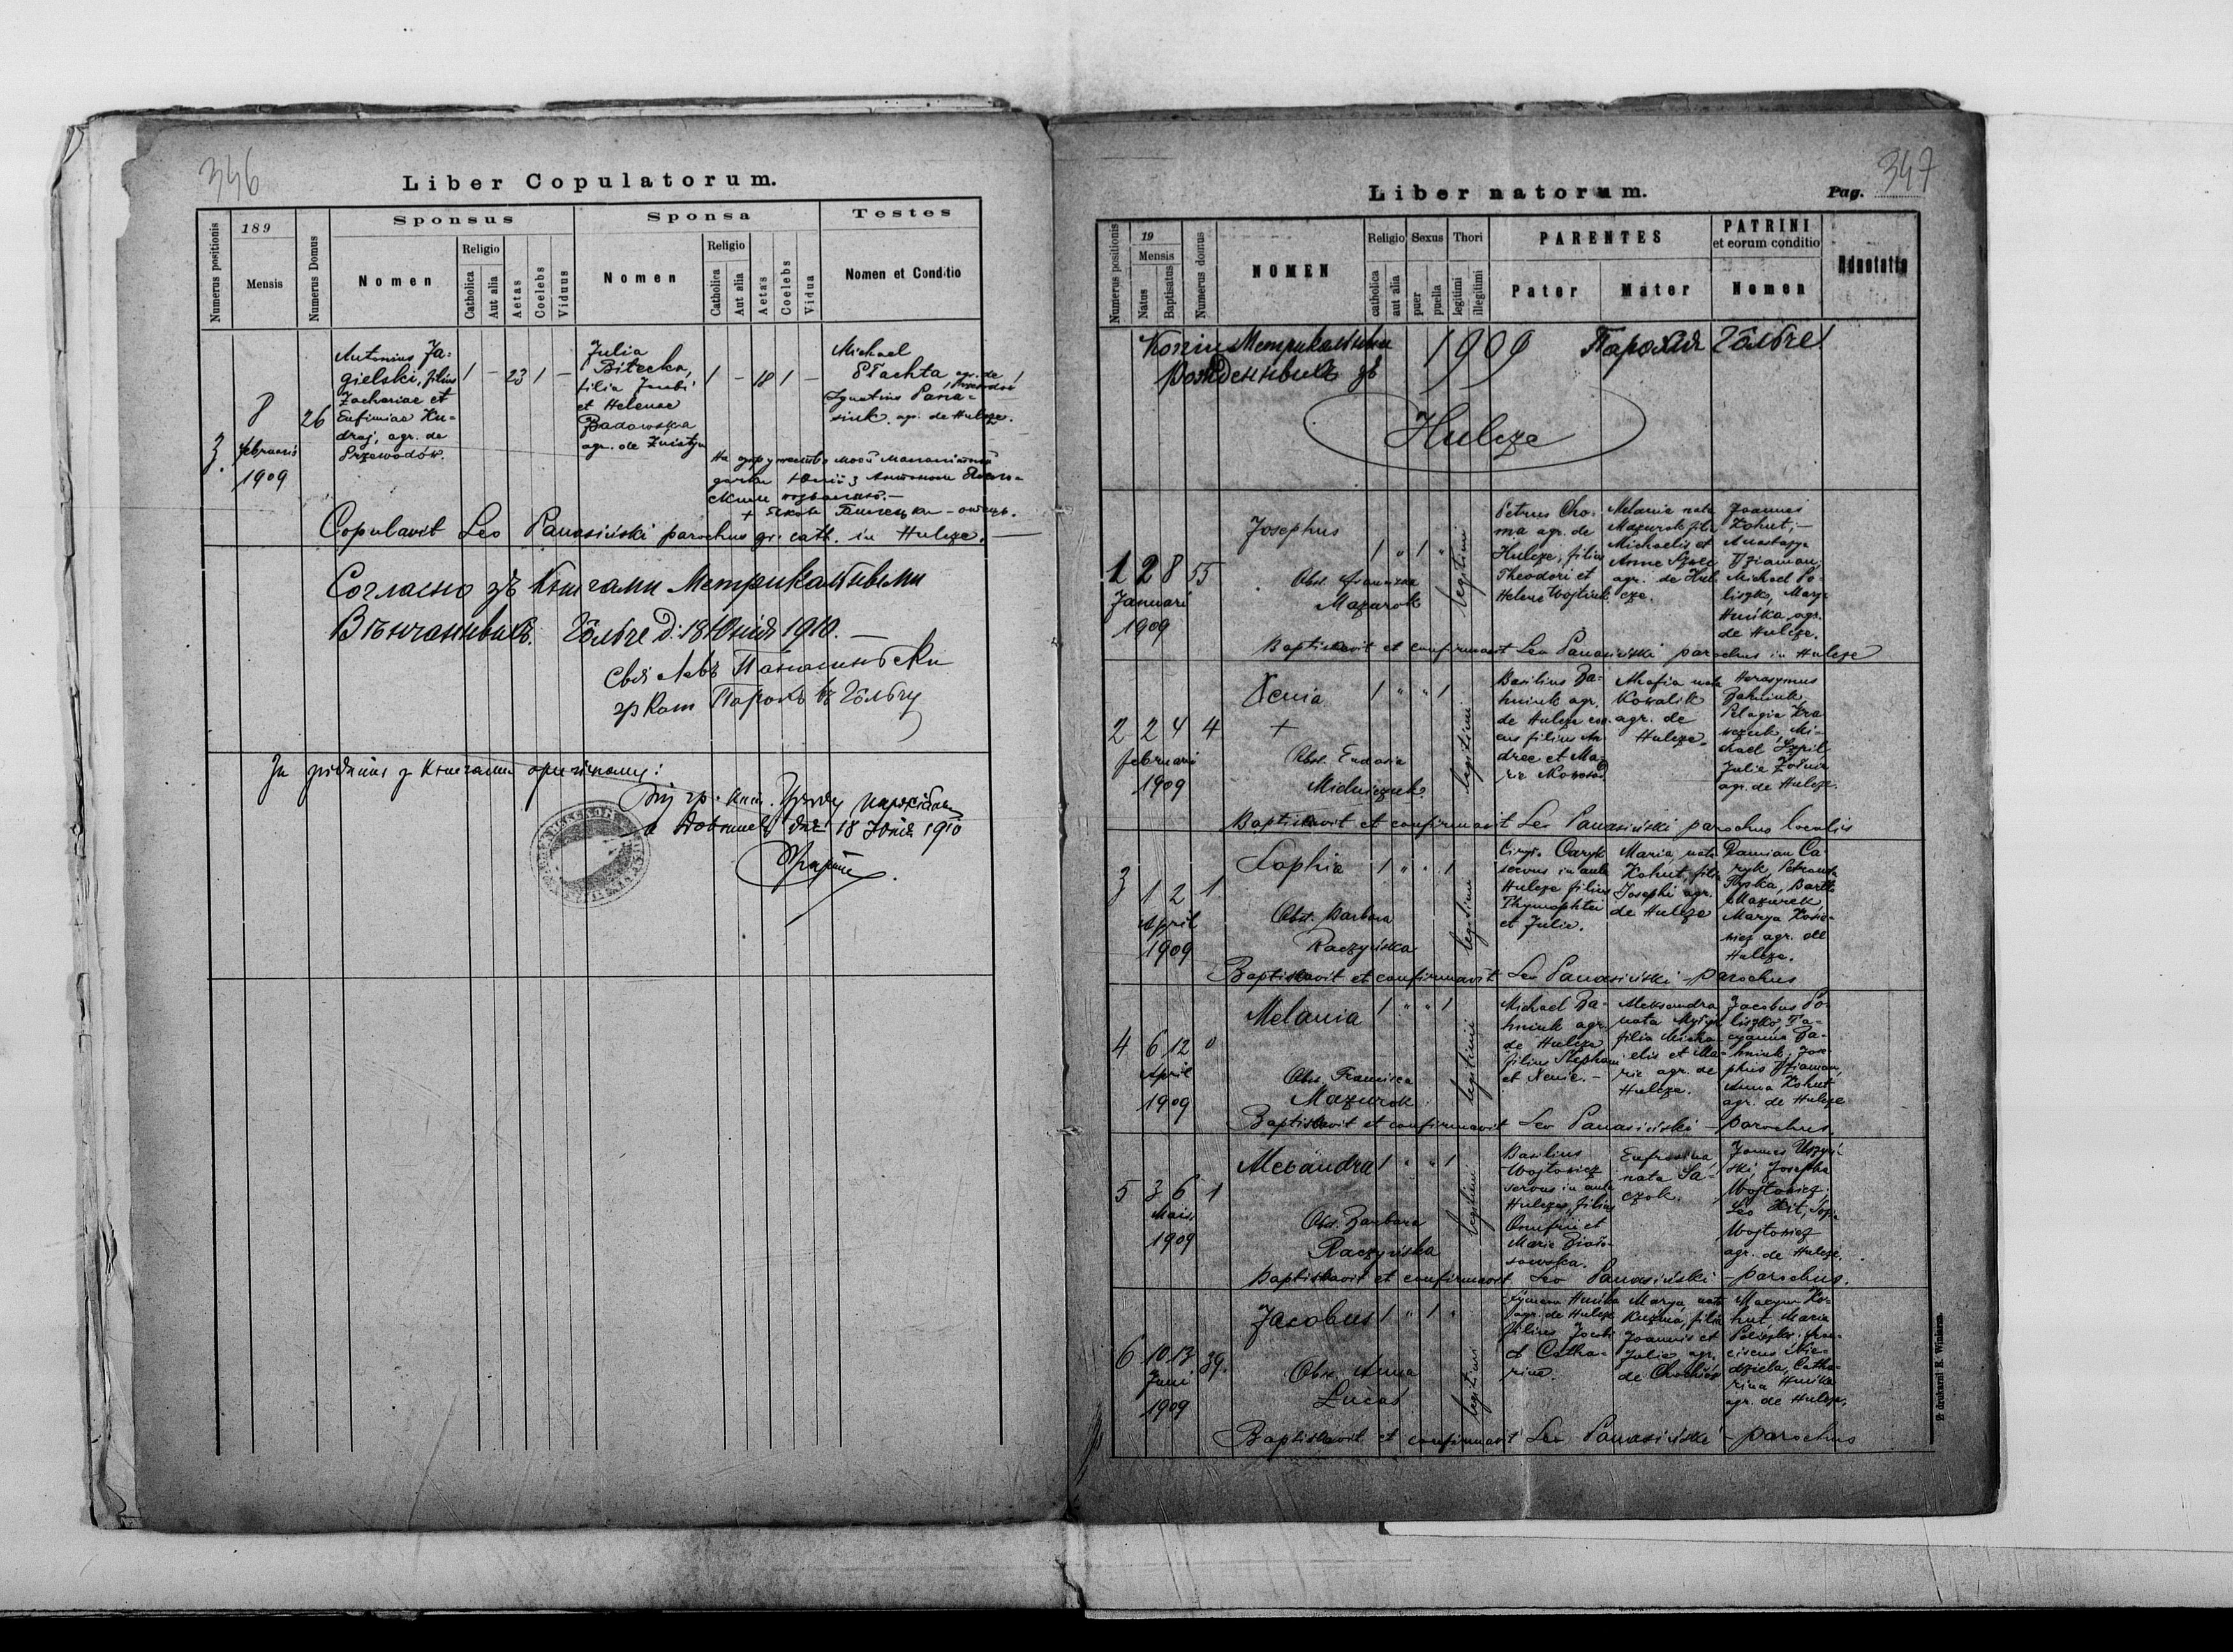 346
Liber Copulatorum.
Numerus positionis
189
Mensis
Numerus Domus
Sponsus
Nomen
Religio
Catholica
Aut alia
Aetas
Coelebs
Viduus
Sponsa
Nomen
Religio
Catholica
Aut alia
Aetas
Coelebs
Vidua
Testes
Nomen et Conditio
3.
8
februarii
1909
26
Antonius Ja-
gielski, filius
Zachariae et
Eufimiae Ku-
draj, agr. de
Przewodów.
1 - 23 1 -
Julia
Bitecka,
filia Jacobi
et Helenae
Badowska
agr. de
1 - 18 1 -
Michael
Płachta agr. de
Przewodów
Ignatius Pana-
siuk. agr. de Hulcze.
На супружество моєй малолітной
дочки Юлії з Антоном
позваляю.-
+ Яков - отець.
Copulavit Leo Panasiński parochus gr. cath. in Hulcze.
Согласно зъ Книгами Метрикальными
Вѣнчанныхъ. Гôльче д. 18 Юнія 1910.-
Свящ Левъ Панасиньски
гр кат Парохъ въ Гôльчу
За згôдність з книгами :
гр. кат.
18 Юнія 1910
347
Liber natorum.
Pag.
Numerus positionis
19
Mensis
Natus
Baptisatus
Numerus domus
NOMEN
Religio
catholica
aut alia
Sexus
puer
puella
Thori
legitimi
illegitimi
PARENTES
Pater
Mater
PATRINI
et eorum conditio
Nomen
Adnotatio
Копія Метрикальна 1909 Парохія Гôльче
Рожденныхъ зъ
Hulcze
1 2 8 55
Januarii
1909
Josephus
Obst. Francisca
Mazurok
1 " 1 "
legitimi
Petrus Cho-
ma agr. de
Hulcze, filius
Theodori et
Helene Wojtiuk.
Melania nata
Mazurok filia
Michaelis et
Anne
agr. de Hul-
cze.
Joannes
Kohut, -
Anastazya
Dziaman,
Michael Po-
liszko, Marya
Hnitka agr.
de Hulcze.
Baptisavit et confirmavit Leo Panasiński parochus in Hulcze
2 2 4 4
februarii
1909
Xenia
+
Obst. Eudocia
Michniczuk.
1 " " 1
legitimi
Basilius Ba-
hniuk agr.
de Hulcze
filius An-
dree et Ma-
rie
nata
Kowalik
agr. de
Hulcze.
Herasymus
Bahniuk,
Pelagia Kra
wczuk, Mi-
chael Szpil
Julia
agr. de Hulcze.
Baptisavit et confirmavit Leo Panasiński parochus localis
3 1 2 1
April
1909
Sophia
Obst. Barbara
Raczyńska
1 " " 1
legitimi
Caryk
servus in aula
Hulcze filius
Thymophtei
et Julie.
Maria nata
Kohut, filia
Josephi agr.
de Hulcze
Damian Ca-
ryk,
Mazurek,
Marya
agr. de
Hulcze.
Baptisavit et confirmavit Leo Panasiński - parochus
4 6 12 0
April
1909
Melania
Obst. Francisca
Mazurok
1 " " 1
legitimi
Michael Ba-
hniuk agr.
de Hulcze
filius Stephani
et Xenie. -
Aleksandra
nata
filia Micha-
elis et Ma-
rie agr. de
Hulcze.
Jacobus Po-
liszko, Ta-
cyanna Ba-
hniuk, Jose-
phus Dziaman,
Anna Kohut
agr. de Hulcze
Baptisavit et confirmavit Leo Panasiński - parochus.
5 3 6 1
Maii
1909
Alexandra
Obst. Barbara
Raczyńska
1 " " 1
legitimi
Basilius
Wojtowicz
servus in aula
Hulcze, filius
Onufrii et
Marie
Eufrosina
nata Sa-
czok.
Joannes
Josepha
Wojtowicz,
Leo Kit,
Wojtowicz
agr. de Hulcze.
Baptisavit et confirmavit Leo Panasiński - parochus.
6 10 13 39.
Juni
1909
Jacobus
Obst. Anna
Lucas
1 " 1 "
legitimi
Hnitka
agr. de Hulcze
filius Jacobi
et Catha-
rine.
Marya nata
Kuzma, filia
Joannis et
Julie agr.
de
Ko-
hut, Maria
Poliszko, Fran-
ciscus Nie-
dziela, Catha-
rina Hnitka
agr. de Hulcze.
Baptisavit et confirmavit Leo Panasiński - parochus
Z drukarni E. Winiarza.